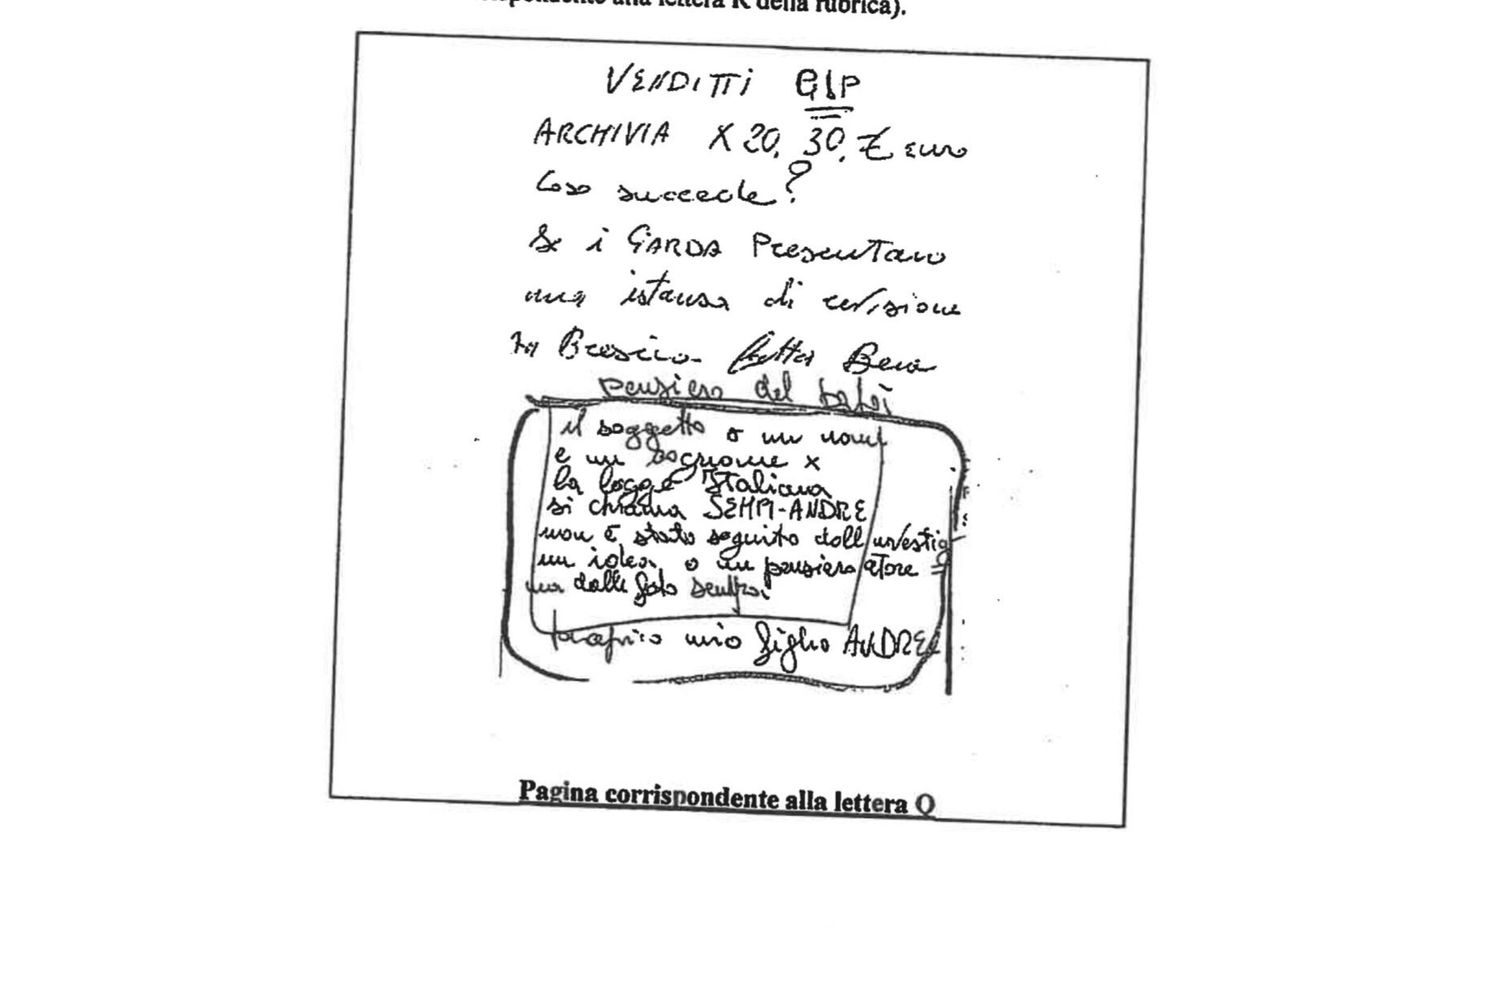 rispondente alla lettera R della rubrica).
VENDITTI GIP
ARCHIVIA X 20. 30. € euro
Cosa succede?
Se i GARDA Presentano
una istanza di revisione
in Brescia Fatta Bene
pensiero del
il soggetto o un nome
e un cognome x
la legge Italiana
si chiama SEMPI-ANDRE
non è stato seguito dall investig
un idea, o un pensiero atore
ma dalle foto
mio figlio ANDREA
Pagina corrispondente alla lettera Q